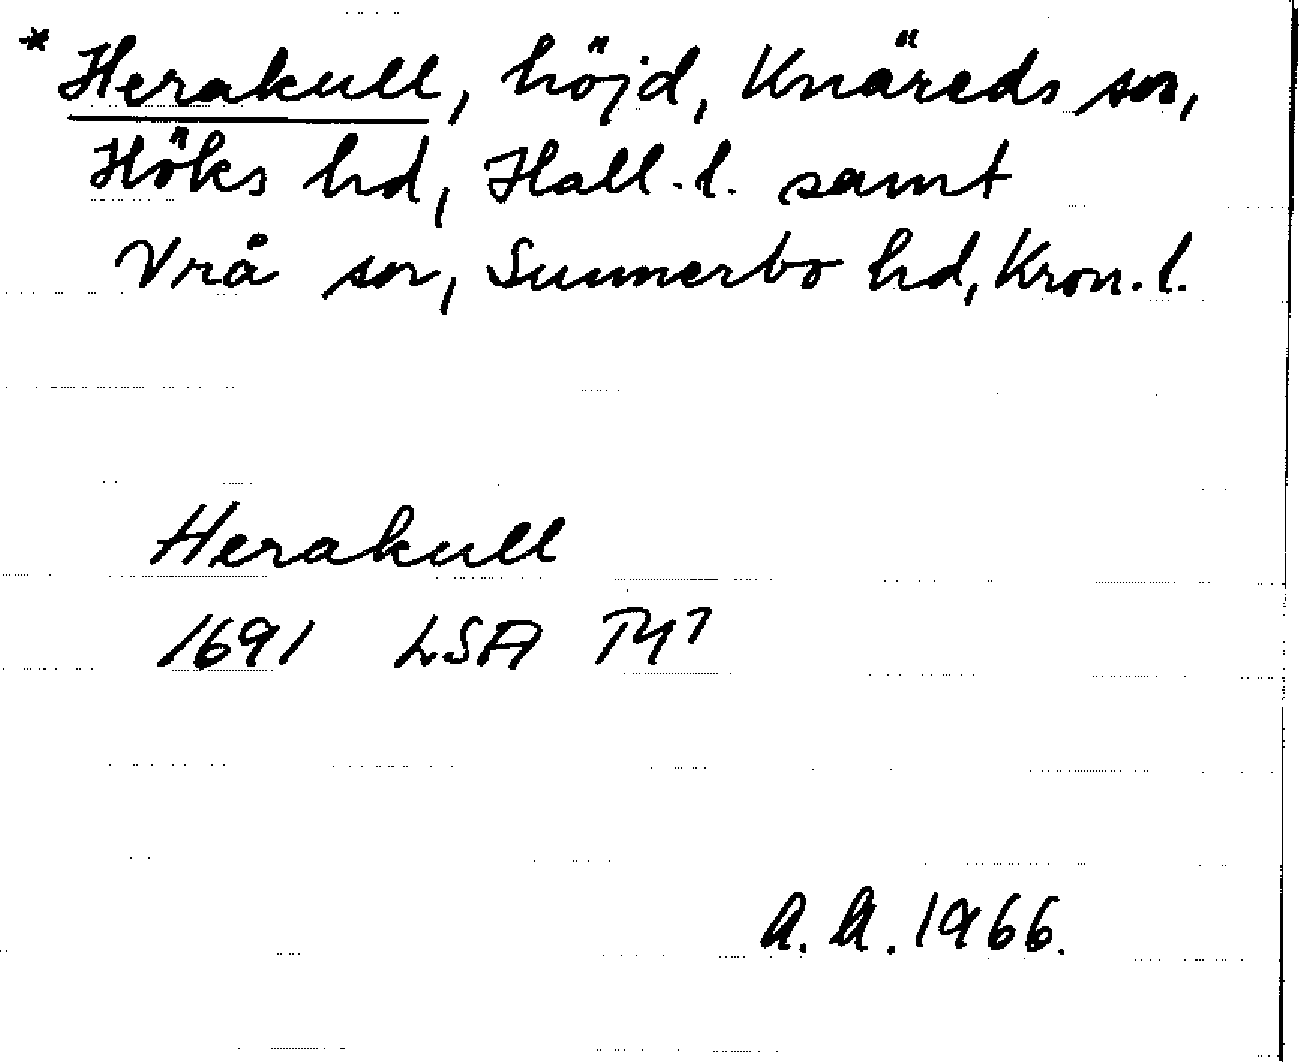 * Herakull, höjd, Knäreds sn,
Höks hd, Hall. l. samt
Vrå sn, Sunnerbo hd, Kron. l.
Herakull
1691 LSA
1966.